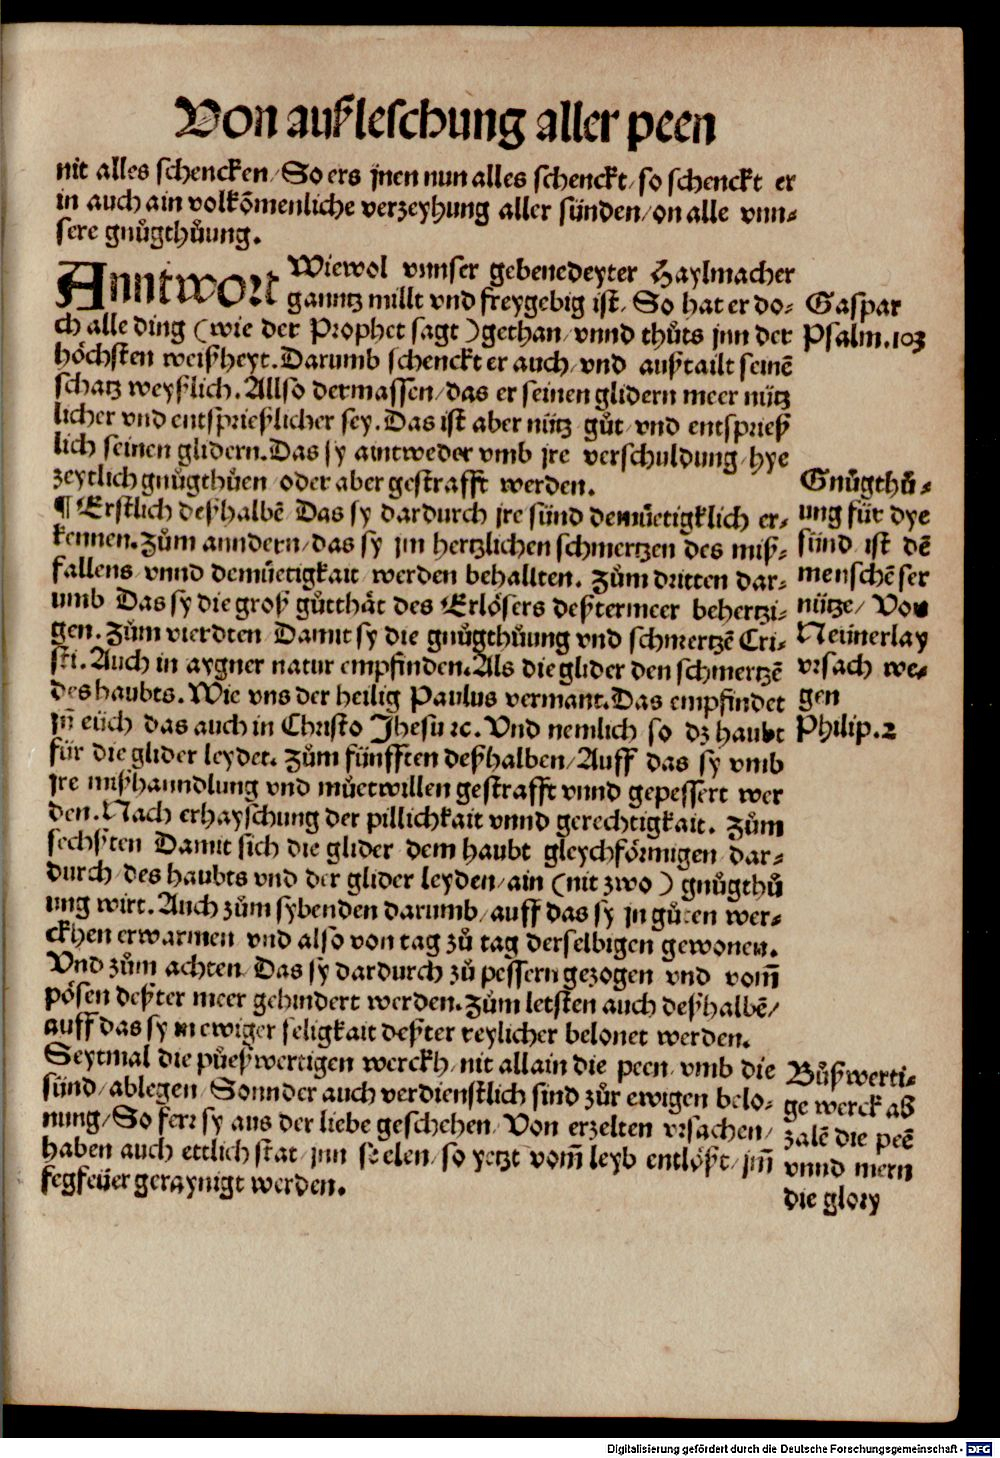 Von auſzleſchung aller peen
nit alles ſchencken/ So ers jnen nun alles ſchenckt/ ſo ſchenckt er
in auch ain volkõmenliche verzeyhung aller ſünden/ on alle vnn-
ſere gnůgthůung.
Anntwort Wiewol vnnſer gebenedeyter Haylmacher
ganntz millt vnd freygebig iſt/ So hat er do-
ch alle ding (wie der Prophet ſagt) gethan/ vnnd thůts jnn der
höchſten weiſzheyt. Darumb ſchenckt er auch/ vnd auſztailt ſeinẽ
ſchatz weyſzlich. Allſo dermaſſen/ das er ſeinen glidern meer nütz
licher vnd entſprieſzlicher ſey. Das iſt aber nütz gůt/ vnd entſprieſz
lich ſeinen glidern. Das ſy aintweder vmb jre verſchuldung/ hye
zeytlich gnůgthůen/ oder aber geſtrafft werden.
¶ Erſtlich deſzhalbẽ Das ſy dardurch jre ſünd demüetigklich er-
kennen. Zům anndern/ das ſy jm hertzlichen ſchmertzen des miſz-
fallens/ vnnd demüetigkait werden behallten. Zům dritten dar-
umb Das ſy die groſz gůtthät des Erlöſers deſztermeer behertzi-
gen. Zům vierdten Damit ſy die gnůgthůung vnd ſchmertzẽ Cri-
ſti. Auch in aygner natur empfinden. Als die glider den ſchmertzẽ
des haubts. Wie vns der heilig Paulus vermant. Das empfindet
jñ eüch das auch in Chriſto Jheſu ꝛc. Vnd nemlich ſo dz haubt
für die glider leydet. Zům fünfften deſzhalben/ Auff das ſy vmb
jre miſzhanndlung vnd můetwillen geſtrafft vnnd gepeſſert wer
den. Nach erhayſchung der pillichkait vnnd gerechtigkait. Zům
ſechſzten Damit ſich die glider dem haubt gleychförmigen/ dar-
durch/ des haubts vnd der glider leyden/ ain (nit zwo) gnůgthů
ung wirt. Auch zům ſybenden darumb/ auff das ſy jn gůten wer-
ckhen erwarmen vnd alſo von tag zů tag derſelbigen gewonen.
Vnd zům achten/ Das ſy dardurch zů peſſern gezogen vnd vom̃
pöſen deſzter meer gehindert werden. Zům letſten auch deſzhalbẽ/
auff das ſy in ewiger ſeligkait deſzter reylicher belonet werden.
Seytmal die püeſzwertigen werckh/ nit allain die peen/ vmb die
ſünd/ ablegen/ Sonnder auch verdienſtlich ſind zůr ewigen belo-
nung/ So ferr ſy aus der liebe geſchehen/ Von erzelten vrſachen/
haben auch ettlich ſtat/ jnn ſeelen/ ſo yetzt vom̃ leyb entlöſzt/ jm̃
fegfeüer geraynigt werden.
Gaſpar
Pſalm. 103
Gnůgthů-
ung für dye
ſünd/ iſt dẽ
menſchẽ ſer
nütze/ Von
Neünerlay
vrſach we-
gen
Philip. 2
Bůſzwerti-
ge werck ab
zalẽ die peẽ
vnnd mern
die glory
Digitalisierung gefördert durch die Deutsche Forschungsgemeinschaft - DFG